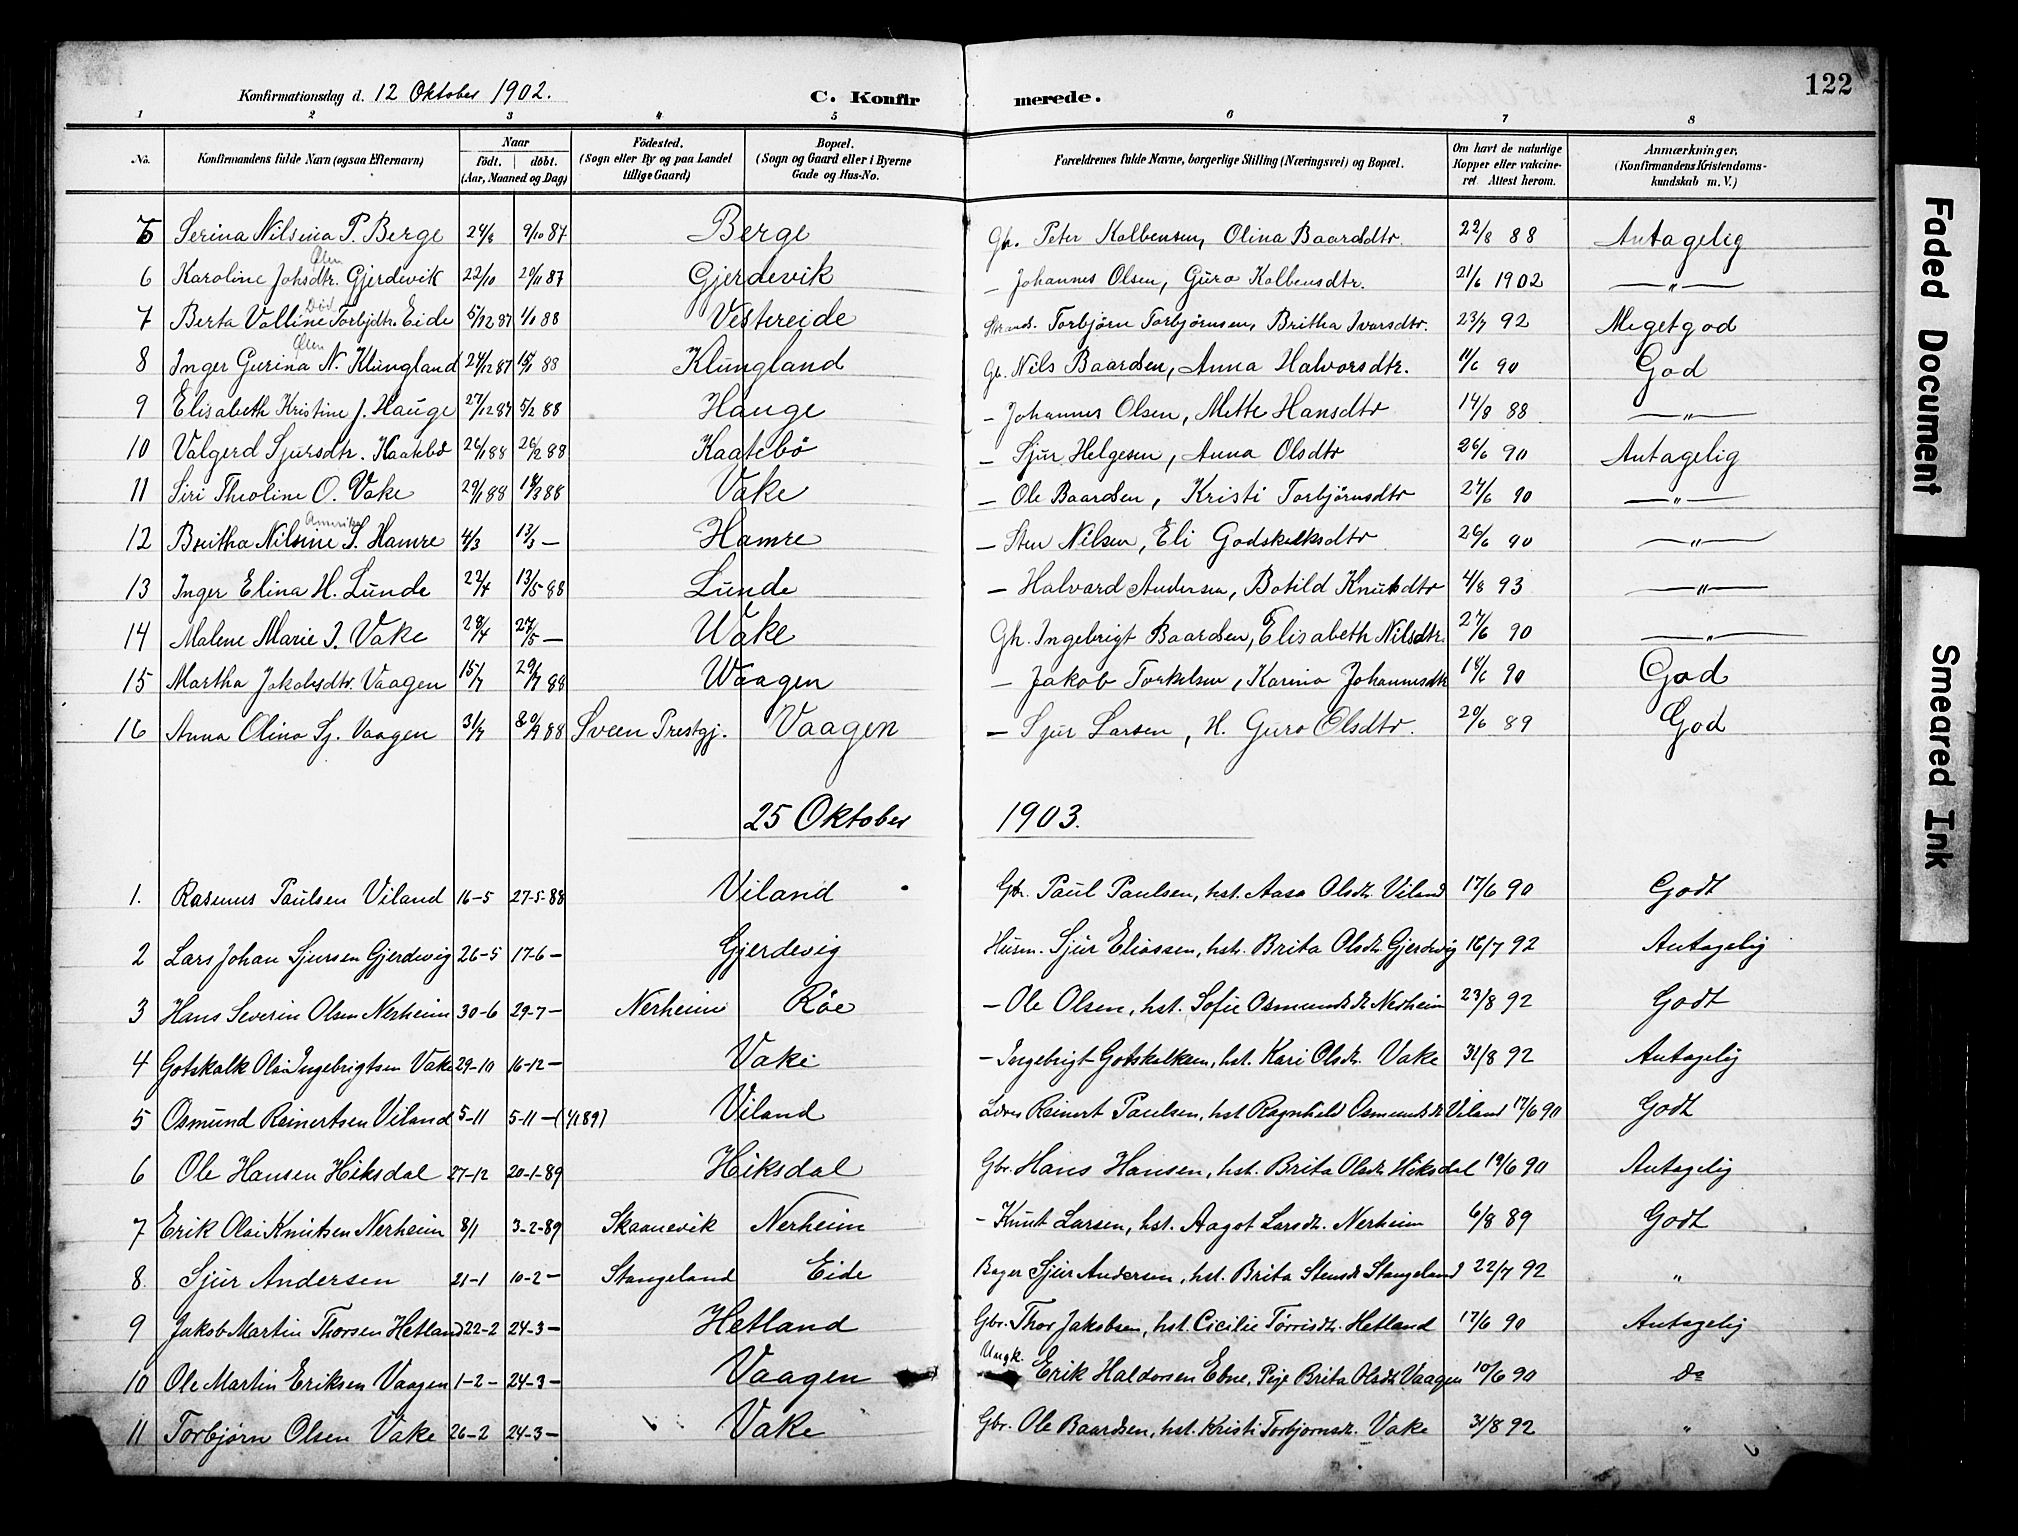 122
Konfirmationsdag d. 12 Oktober 1902. C. Konfirmerede.
1 2 3 4 5 6 7 8
No. Konfirmandens fulde Navn (ogsaa Efternavn) Naar födt. döbt. (Aar, Maaned og Dag) Födested. (Sogn eller By og paa Landet tillige Gaard) Bopæl. (Sogn og Gaard eller i Byerne Gade og Hus-No. Forældrenes fulde Navne, borgerlige Stilling (Næringsvei) og Bopæl. Om havt de naturlige Kopper eller vaccineret Attest herom. Anmærkninger, (Konfirmandens Kristendomskundskab m. V.)
5 Serina Nilsina P. Berge 24/8 9/10 87 Berge Gb. Peter Kolbensen, Olina Baardsdtr. 22/8 88 Antagelig
Ølen
6 Karoline Johsdtr. Gjerdevik 22/10 20/11 87 Gjerdevik – Johannes Olsen, Guro Kolbensdtr. 21/6 1902 —"—
Död
7 Berta Valline Torbjdtr. Eide 5/12 87 1/1 88 Vestereide Strands. Torbjörn Torbjörnsen, Britha Ivarsdtr. 23/7 92 Megetgod
Ølen
8 Inger Gurina N. Klungland 24/12 87 15/1 88 Klungland Gb. Nils Baardsen, Anna Halvorsdtr. 11/6 90 God
9 Elisabeth Kristine J. Hauge 27/12 87 5/2 88 Hauge – Johannes Olsen, Mette Hansdtr 14/8 88 —"—
10 Valgerd Sjursdtr. Kaatebø 26/1 88 26/2 88 Kaatebö – Sjur Helgesen, Anna Olsdtr 26/6 90 Antagelig
11 Siri Theoline O. Vake 29/1 88 18/3 88 Vake – Ole Baardsen, Kristi Torbjörnsdtr 24/6 90 —"—
Amerika
12 Britha Nilsine S. Hamre 4/3 13/3 — Hamre – Sten Nilsen, Eli Godskalksdtr 26/6 90 —"—
13 Inger Elina H. Lunde 22/4 13/5 88 Lunde – Halvard Andersen, Botild Knutsdtr 4/8 93 —"—
14 Malene Marie I. Vake 28/4 27/5 — Wake Gb. Ingebrigt Baardsen, Elisabeth Nilsdtr. 27/6 90 —"—
15 Martha Jakobsdtr. Vaagen 15/7 29/7 88 Waagen – Jakob Torkelsen, Karina Johannesdtr 18/6 90 God
16 Anna Olina Sj. Vaagen 31/7 88 Sveen Prestgj. Vaagen – Sjur Larsen, H. Guro Olsdtr. 20/6 89 God
25 Oktober 1903.
1. Rasmus Paulsen Viland 16-5 27-5-88 Viland Gbr. Paul Paulsen, hst. Aasa Olsdtr. Viland 17/6 90 Godt
2 Lars Johan Sjursen Gjerdevig 26-5 17-6- Gjerdevig Husm. Sjur Eliassen, hst. Brita Olsdtr. Gjerdevig 16/7 92 Antagelig
3 Hans Severin Olsen Nerheim 30-6 29-7- Nerheim Röe – Ole Olsen, hst. Sofie Osmundsdtr Nerheim 23/8 92 Godt
4 Gotskalk Olai Ingebrigtsen Vake 29-10 16-12- Vake – Ingebrigt Gotskalksen, hst. Kari Olsdtr. Vake 31/8 92 Antagelig
5 Osmund Reinertsen Viland 5-11 5-11-(4/1 89) Viland Reinert Paulsen, hst Ragnhild Osmundsdtr Viland 17/6 90 Godt
6 Ole Hansen Hiksdal 27-12 20-1-89 Hiksdal Gbr. Hans Hansen, hst. Brita Olsdtr. Hiksdal 19/6 90 Antagelig
7 Erik Olai Knutsen Nerheim 8/1 3-2-89 Skaanevik Nerheim – Knut Larsen, hst. Aagot Larsdtr. Nerheim 6/8 89 Godt
8. Sjur Andersen 21-1 10-2- Stangeland Eide Bager Sjur Andersen, hst. Brita Stensdtr Stangeland 22/7 92 "
9 Jakob Martin Thorsen Hetland 22-2 24-3- Hetland Gbr. Thor Jakobsen, hst. Cicilie Törrisdtr. Hetland 17/6 90 Antagelig
10 Ole Martin Eriksen Vaagen 1-2- 24-3- Vaagen Ungk. Erik Haldorsen Ebne, Pige Brita Olsdtr Vaagen 10/6 90 do
11 Torbjørn Olsen Vake 26-2 24-3- Vake Gbr. Ole Baardsen, hst. Kristi Torbjornsdtr. Vake 31/8 92 "
Faded Document
Smeared Ink